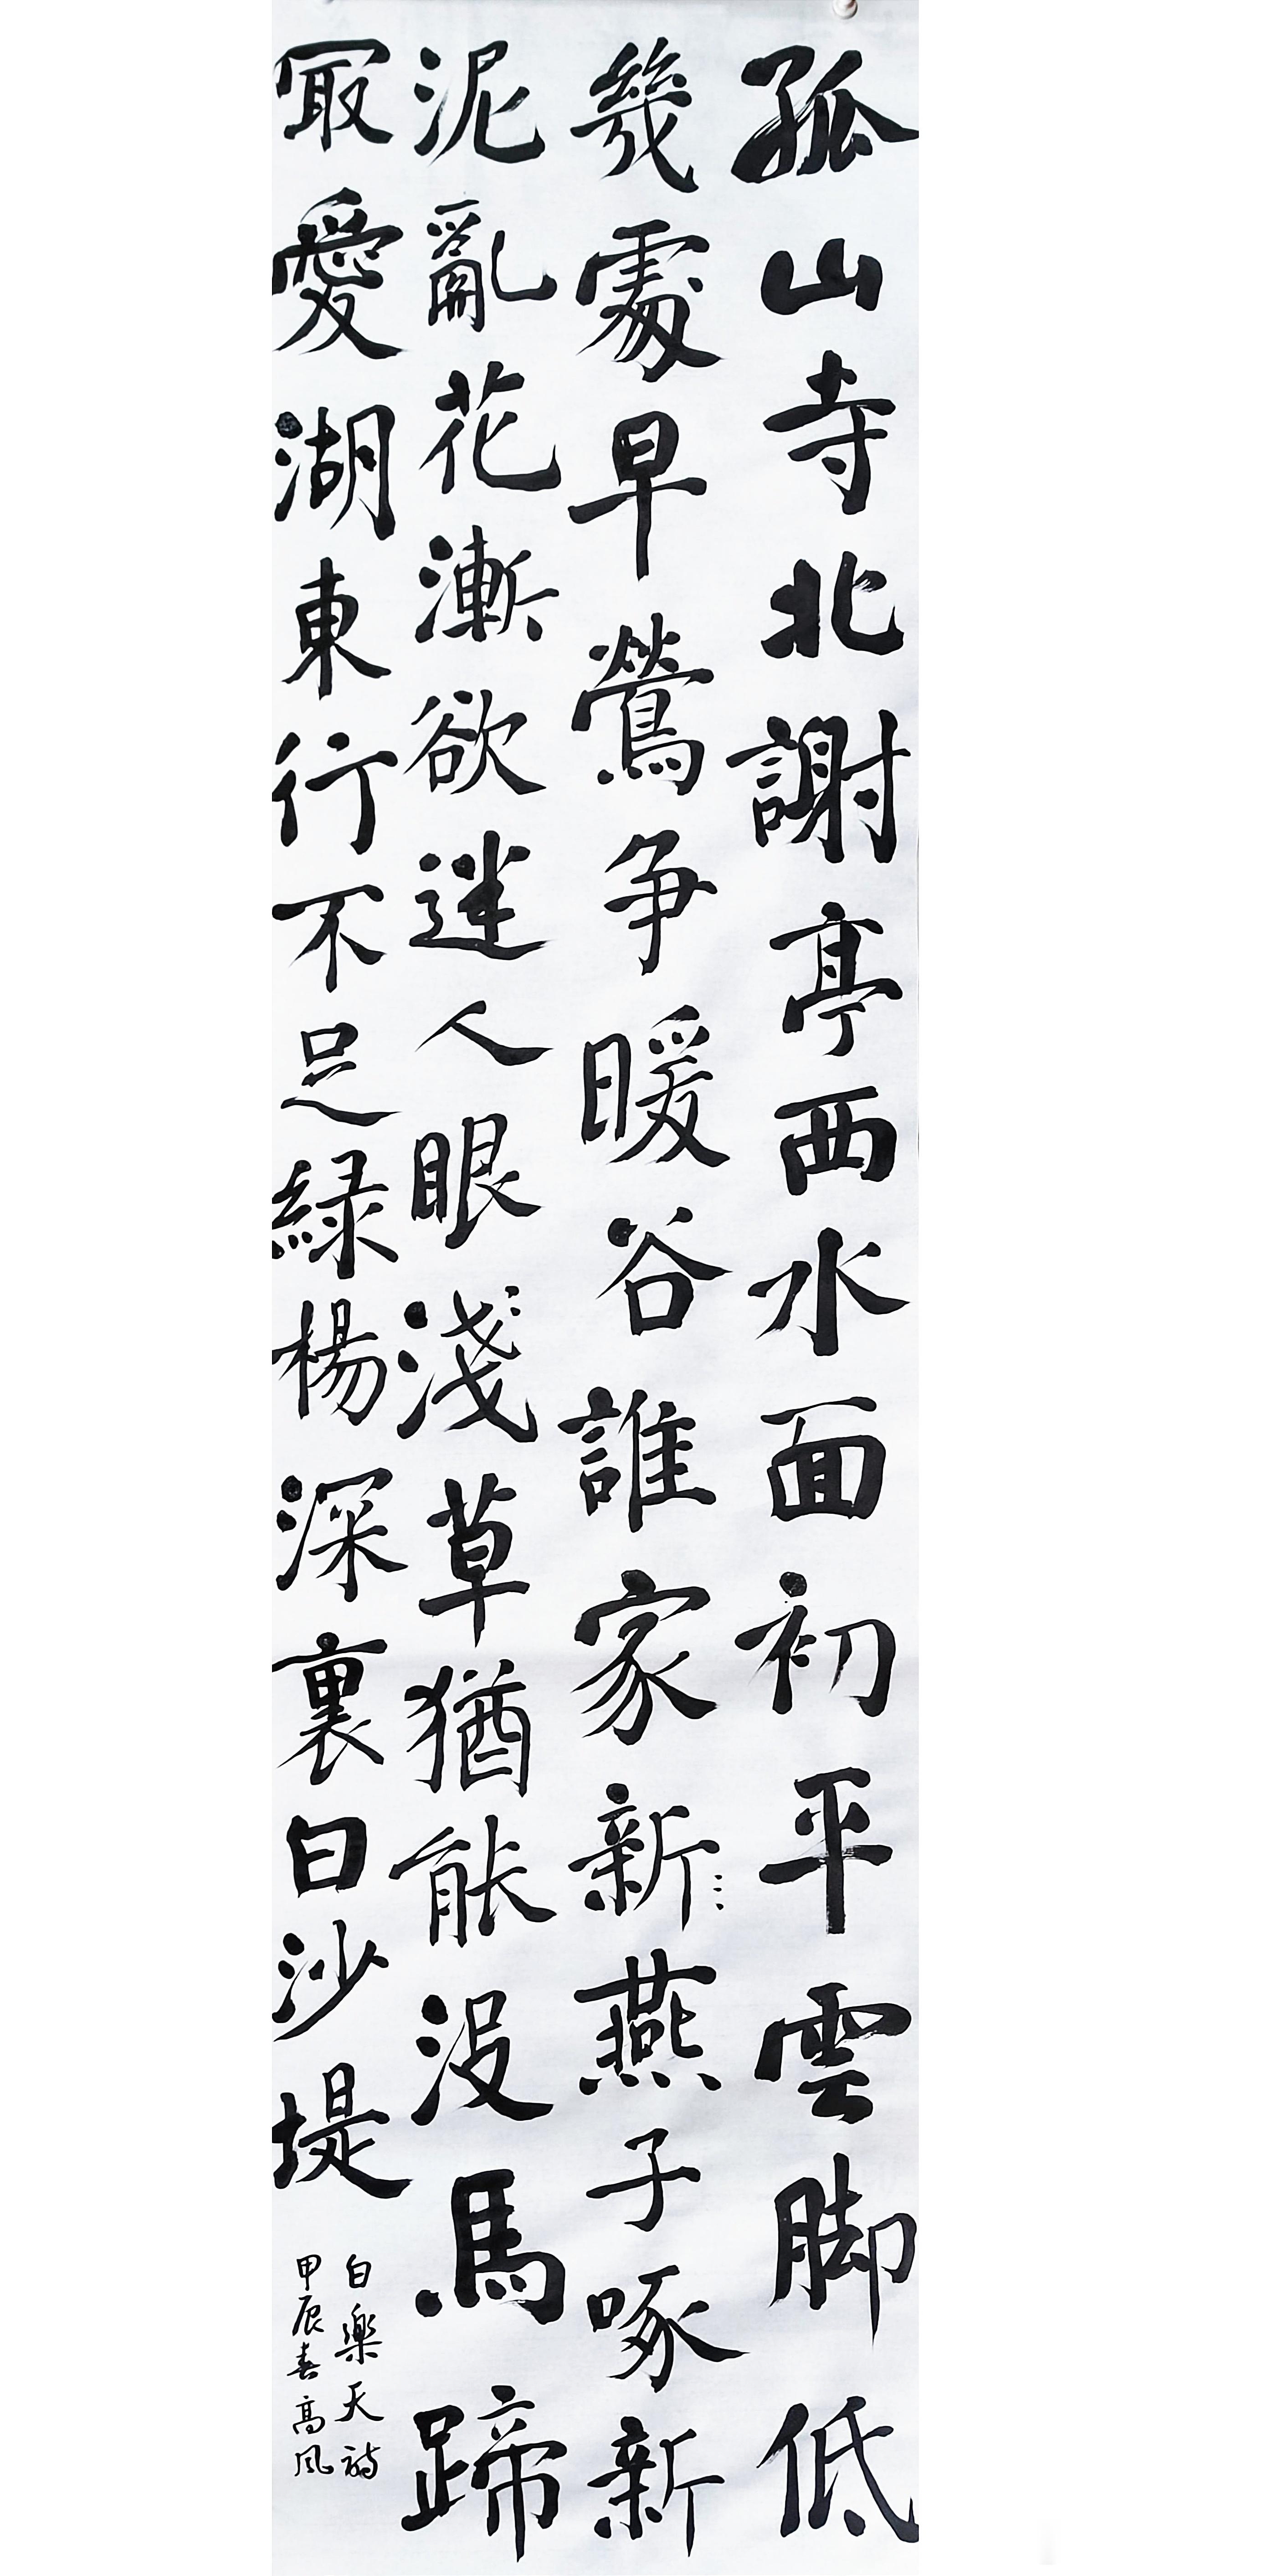 孤山寺北謝亭西水面初平雲脚低
幾處早鶯争暖谷誰家新燕子啄新
泥亂花漸欲迷人眼淺草猶能没馬蹄
冣愛湖東行不足緑楊深裏白沙堤
白樂天詩
甲辰春高风